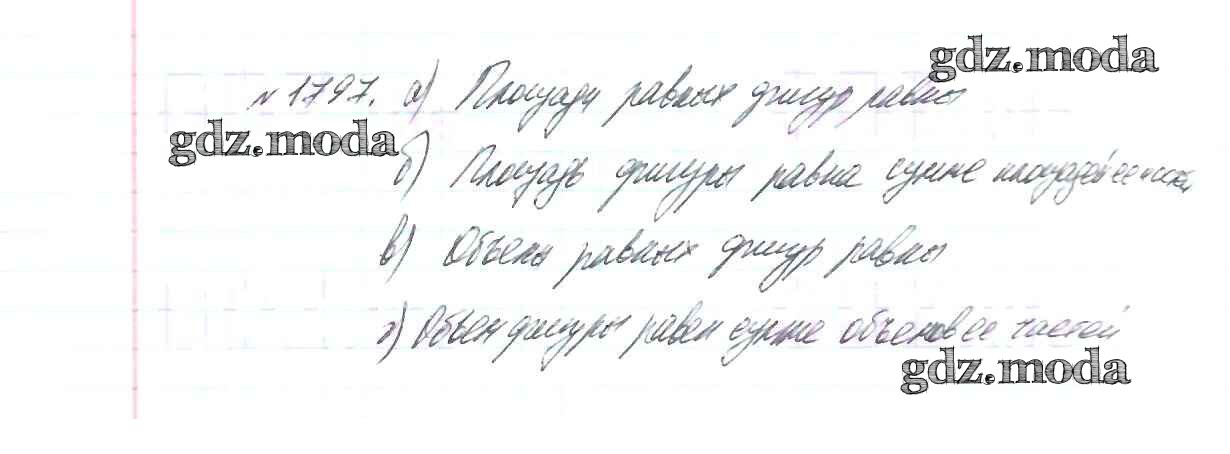 gdz.moda
№ 1797. а) Площади равных фигур равны
gdz.moda
б) Площадь фигуры равна сумме площадей ее частей
в) Объемы равных фигур равны
г) Объем фигуры равен сумме объемов ее частей
gdz.moda